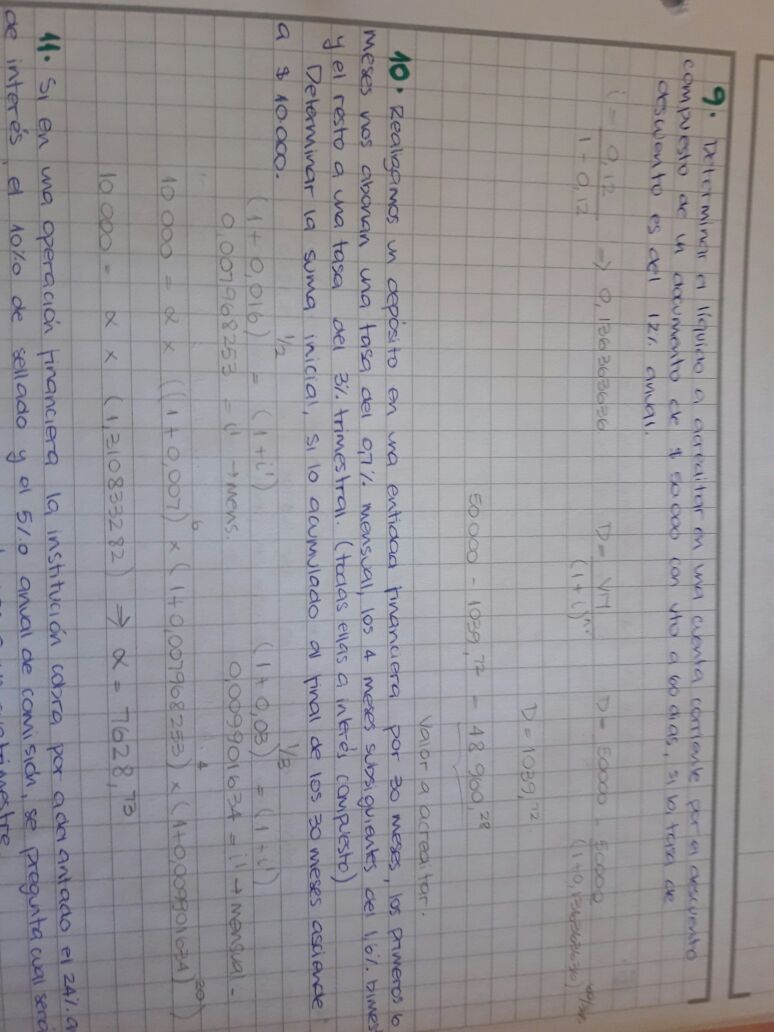 9. Determinar el líquido a acreditar en una cuenta corriente por el descuento
compuesto de un documento de $ 50 000 con vto a 60 días, si la tasa de
descuento es del 12% anual.
i = 0,12 / 1 - 0,12 => 0,136363636
D = VN / (1+i)^n
D = 50000 - 50000 / (1+0,1363636363)
D = 1039,72
50 000 - 1039,72 = 48 960,28
Valor a acreditar.
10. Realizamos un depósito en una entidad financiera por 30 meses, los primeros 6
meses nos abonan una tasa del 0,7% mensual, los 4 meses subsiguientes del 1,6% bimes
y el resto a una tasa del 3% trimestral. (todas ellas a interés compuesto)
Determinar la suma inicial, si lo acumulado al final de los 30 meses asciende
a $ 10000.
(1 + 0,016)^1/2 = (1 + i')
0,007968253 = i' → mens.
(1 + 0,03)^1/3 = (1 + i')
0,009901634 = i' → mensual.
10 000 = α x ((1+0,007)^6 x (1+0,007968253)^4 x (1+0,009901634)^20)
10 000 = α x (1,310833282) => α = 7628,73
11. Si en una operación financiera la institución cobra por adelantado el 24% a
de interés, el 10‰ de sellado y el 5‰ anual de comisión, se pregunta cual será